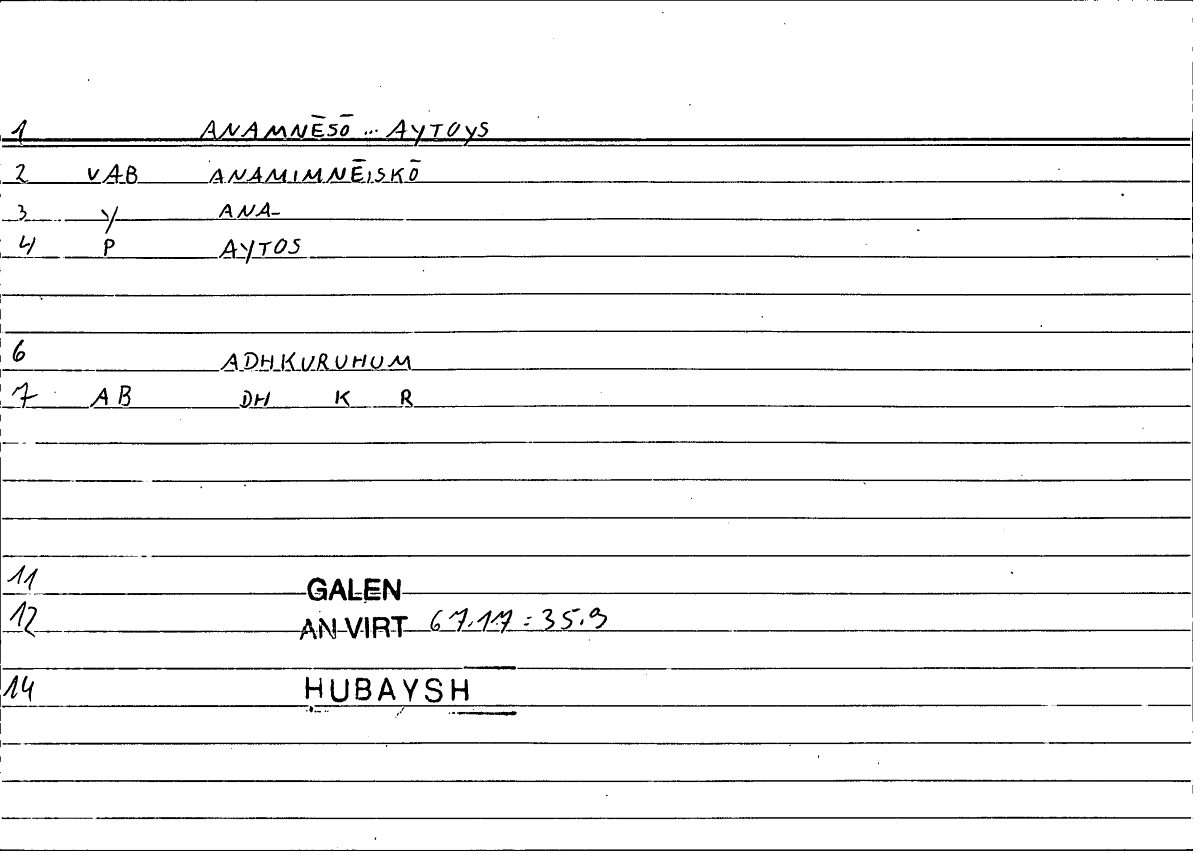 1 ANAMNĒSŌ ... AYTOYS
2 VAB ANAMIMNĒISKŌ
3 Y ANA-
4 P AYTOS
6 ADHKURUHUM
7 AB DH K R
11 GALEN
12 AN VIRT 67.17 : 35.9
14 HUBAYSH